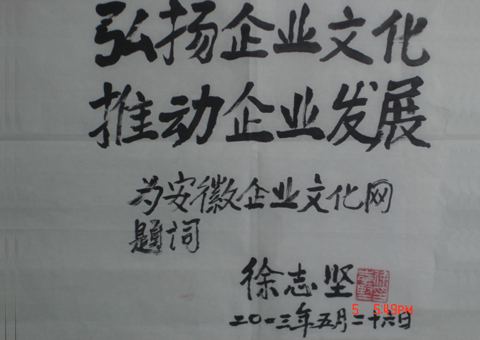 弘扬企业文化
推动企业发展
为安徽企业文化网
题词
徐志坚
5 5:19PM
二〇一三年五月二十六日